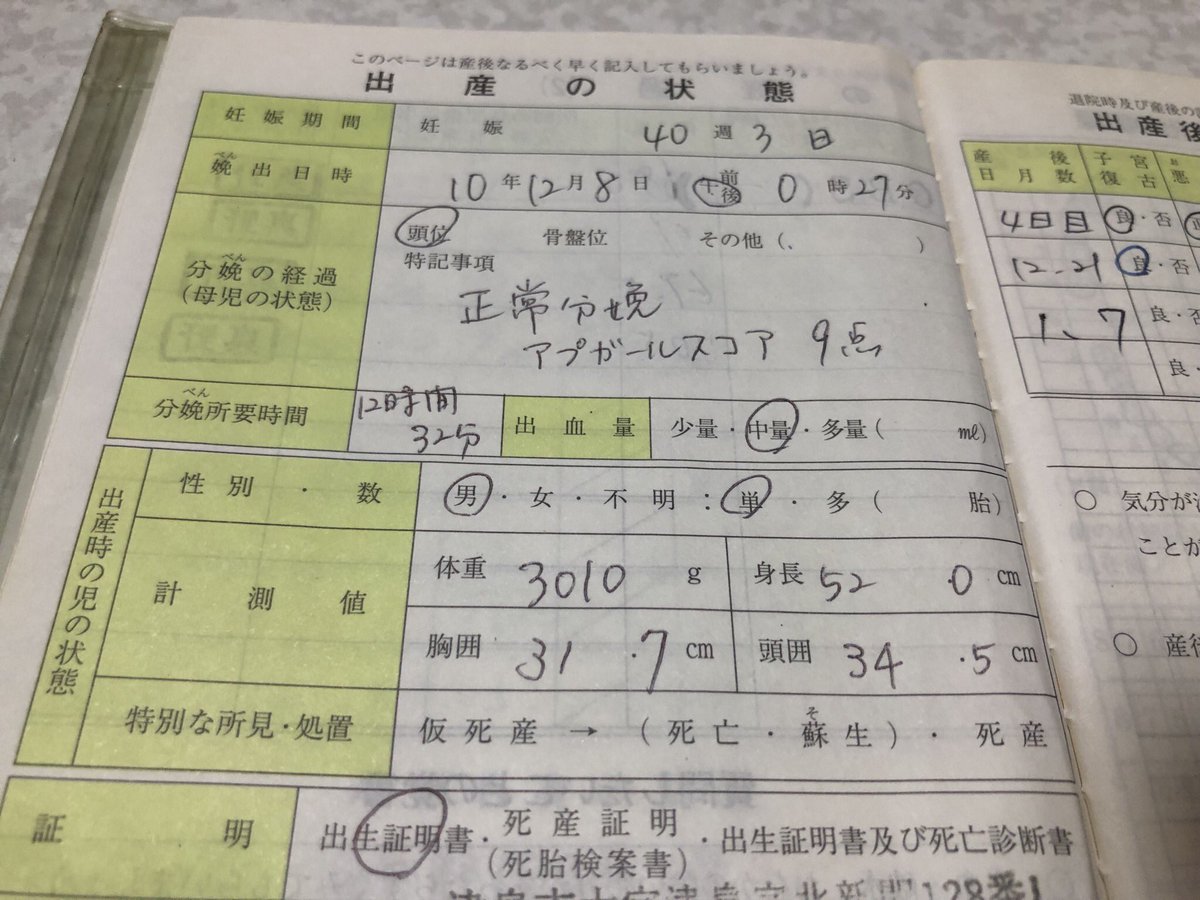 このページは産後なるべく早く記入してもらいましょう。
出産の状態
妊娠期間 妊娠 40週3日
娩出日時 10年12月8日 午前後 0時27分
べん
分娩の経過
(母児の状態)
べん
頭位 骨盤位 その他( )
特記事項
正常分娩
アプガールスコア 9点
分娩所要時間
べん
12時間
32分
出血量 少量・中量・多量( ml)
出産時の児の状態
性別・数 男・女・不明:単・多( 胎)
計測値
体重 3010 g 身長 52.0 cm
胸囲 31.7 cm 頭囲 34.5 cm
特別な所見・処置 仮死産→(死亡・蘇生)・死産
そ
証明 出生証明書・死産証明(死胎検案書)・出生証明書及び死亡診断書
128番
退院時及び産後の
出産後
産後日月数 子宮復古 悪
4日目 良・否
12.21 良・否
1.7 良・否
良・
○ 気分が
ことが
○ 産